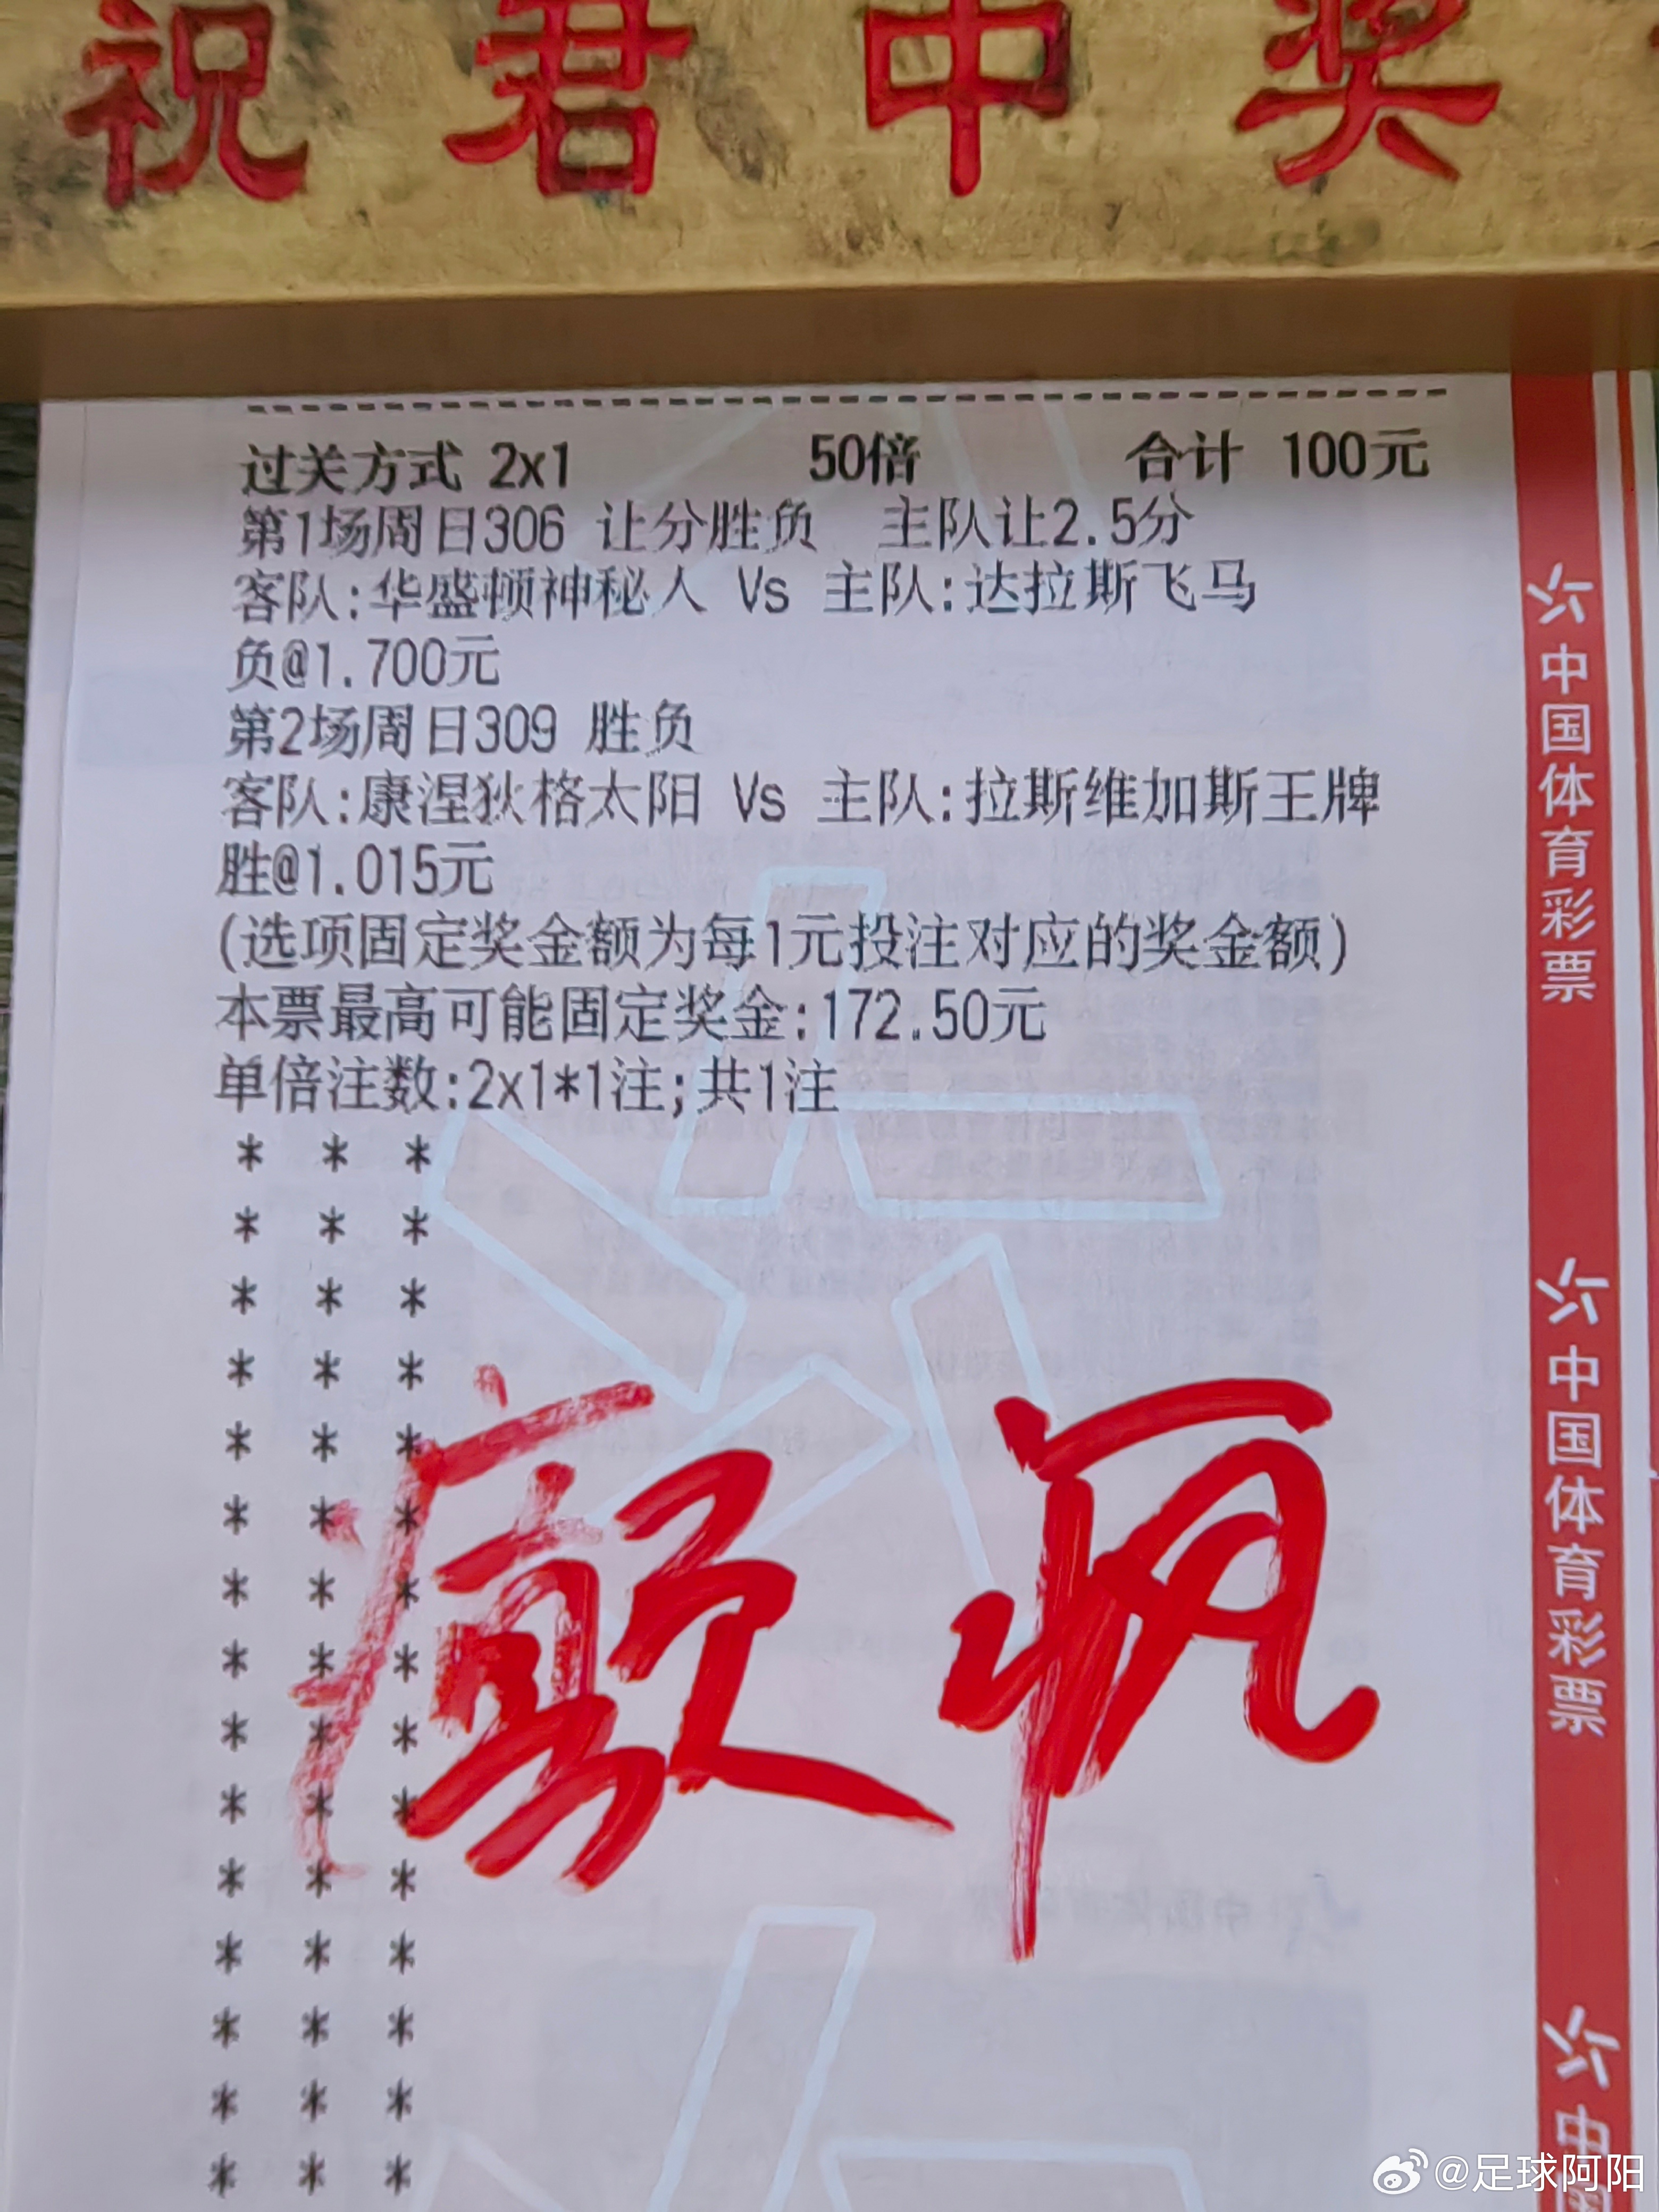 祝君中奖
过关方式 2x1 50倍 合计 100元
第1场周日306 让分胜负 主队让2.5分
客队:华盛顿神秘人 Vs 主队:达拉斯飞马
负@1.700元
第2场周日309 胜负
客队:康涅狄格太阳 Vs 主队:拉斯维加斯王牌
胜@1.015元
(选项固定奖金额为每1元投注对应的奖金额)
本票最高可能固定奖金:172.50元
单倍注数:2x1*1注;共1注
* * *
* * *
* * *
* * *
* * *
* * *
* * *
* * *
* * *
* * *
* * *
* * *
* * *
* * *
* * *
中国体育彩票
中国体育彩票
中国
@足球阿阳